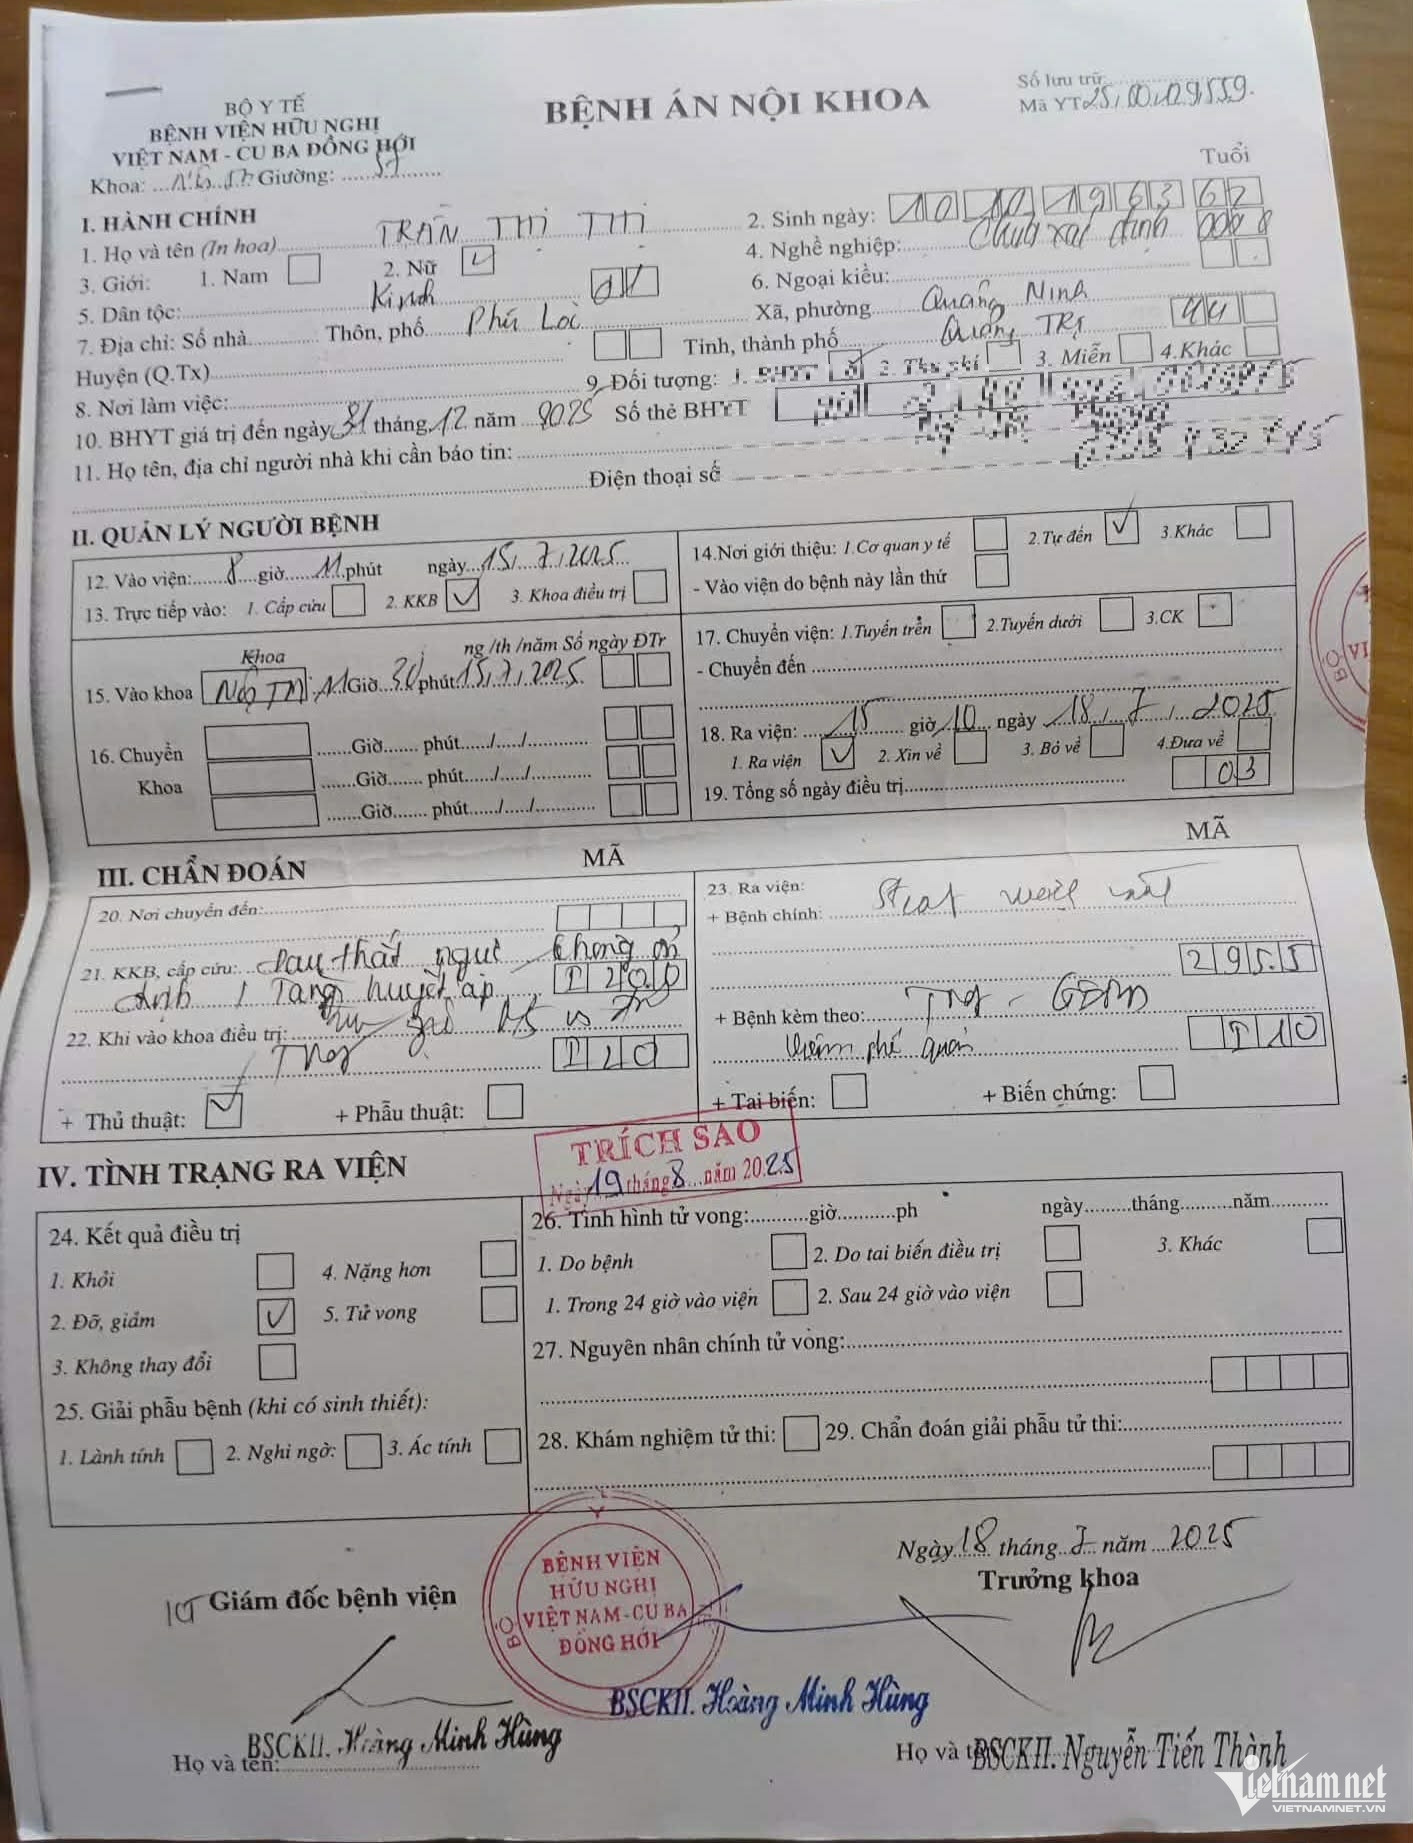 BỘ Y TẾ
BỆNH VIỆN HỮU NGHỊ
VIỆT NAM - CU BA ĐỒNG HỚI
Khoa: Giường:
BỆNH ÁN NỘI KHOA
Số lưu trữ:
Mã YT 25.00.029559.
Tuổi
I. HÀNH CHÍNH
1. Họ và tên (In hoa) TRẦN THỊ THI
2. Sinh ngày: 10 10 1963 62
3. Giới: 1. Nam 2. Nữ
4. Nghề nghiệp: Chưa xác định
5. Dân tộc: Kinh
6. Ngoại kiều:
7. Địa chỉ: Số nhà Thôn, phố Phú Lộc Xã, phường Quảng Ninh
Huyện (Q.Tx) Tỉnh, thành phố Quảng Trị 44
8. Nơi làm việc: 9. Đối tượng: 1. BHYT 2. Thu phí 3. Miễn 4.Khác
10. BHYT giá trị đến ngày 31 tháng 12 năm 2025 Số thẻ BHYT
11. Họ tên, địa chỉ người nhà khi cần báo tin:
Điện thoại số
II. QUẢN LÝ NGƯỜI BỆNH
12. Vào viện: 8 giờ 11 phút ngày 15/7/2025
13. Trực tiếp vào: 1. Cấp cứu 2. KKB ✓ 3. Khoa điều trị
14.Nơi giới thiệu: 1.Cơ quan y tế 2.Tự đến ✓ 3.Khác
- Vào viện do bệnh này lần thứ
Khoa ng/th/năm Số ngày ĐTr
15. Vào khoa Nội TM 11 Giờ 30 phút 15/7/2025
16. Chuyển Giờ phút / /
Khoa Giờ phút / /
Giờ phút / /
17. Chuyển viện: 1.Tuyến trên 2.Tuyến dưới 3.CK
- Chuyển đến
18. Ra viện: 15 giờ 10 ngày 18/7/2025
1. Ra viện ✓ 2. Xin về 3. Bỏ về 4.Đưa về
19. Tổng số ngày điều trị 03
III. CHẨN ĐOÁN MÃ
20. Nơi chuyển đến:
21. KKB, cấp cứu: Đau thắt ngực không ổn
định / Tăng huyết áp I20.0
22. Khi vào khoa điều trị:
I20
+ Thủ thuật: ✓ + Phẫu thuật:
MÃ
23. Ra viện:
+ Bệnh chính:
Z95.5
+ Bệnh kèm theo:
Viêm phế quản I10
+ Tai biến: + Biến chứng:
TRÍCH SAO
Ngày 19 tháng 8 năm 2025
IV. TÌNH TRẠNG RA VIỆN
24. Kết quả điều trị
1. Khỏi 4. Nặng hơn
2. Đỡ, giảm ✓ 5. Tử vong
3. Không thay đổi
25. Giải phẫu bệnh (khi có sinh thiết):
1. Lành tính 2. Nghi ngờ: 3. Ác tính
26. Tình hình tử vong: giờ ph ngày tháng năm
1. Do bệnh 2. Do tai biến điều trị 3. Khác
1. Trong 24 giờ vào viện 2. Sau 24 giờ vào viện
27. Nguyên nhân chính tử vong:
28. Khám nghiệm tử thi: 29. Chẩn đoán giải phẫu tử thi:
Ngày 18 tháng 7 năm 2025
Giám đốc bệnh viện
Trưởng khoa
BỆNH VIỆN
HỮU NGHỊ
VIỆT NAM-CU BA
ĐỒNG HỚI
BSCKII. Hoàng Minh Hùng
Họ và tên: BSCKII. Hoàng Minh Hùng
Họ và tên BSCKII. Nguyễn Tiến Thành
Vietnamnet
VIETNAMNET.VN